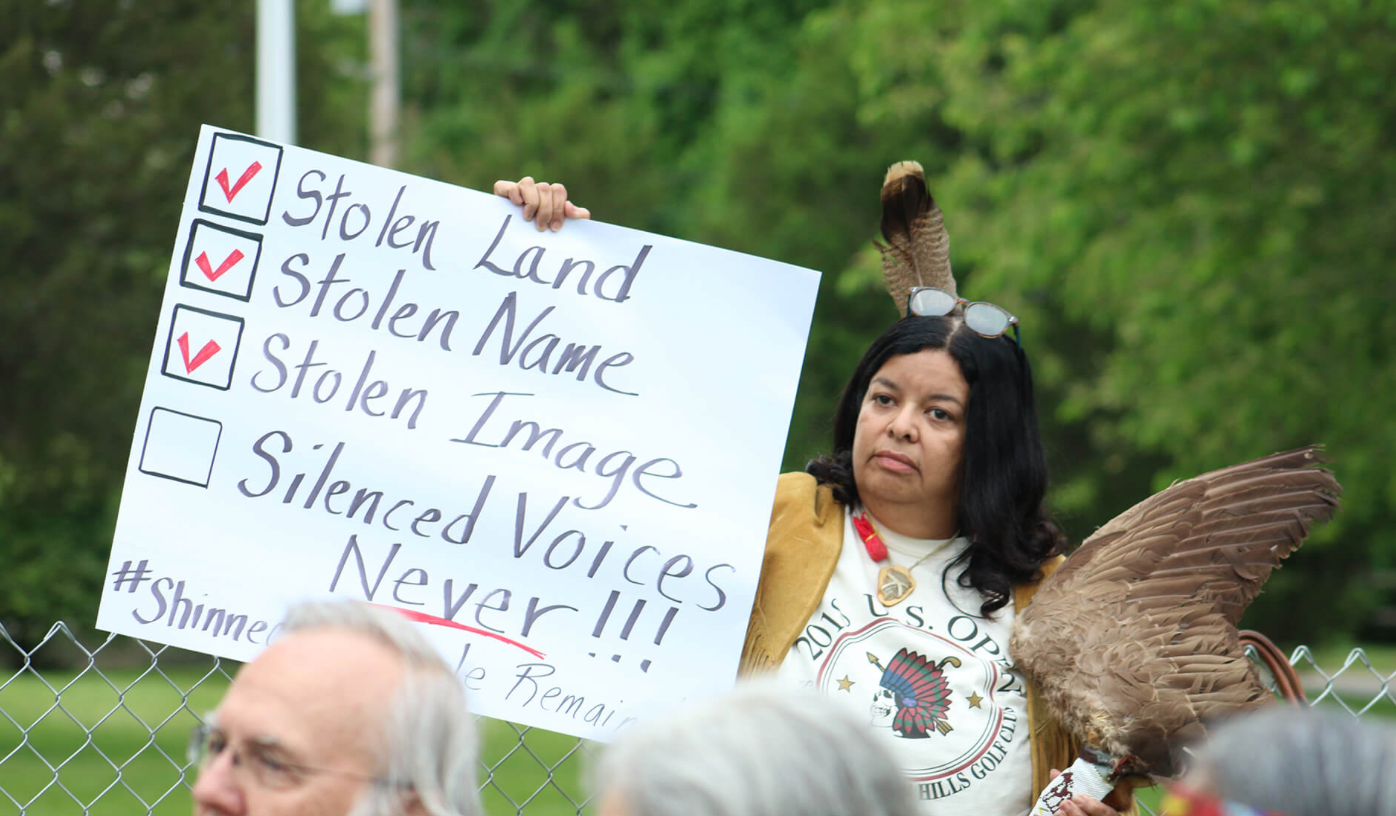 Stolen Land
Stolen Name
Stolen Image
Silenced Voices
Never!!!
#Shinnec
Remain
2015 U.S. OPEN
HILLS GOLF CLUB